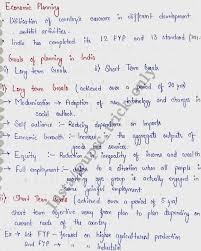 Economic Planning
- Utilisation of country's resources in different development
activities.
- India has completed its 12 FYP and 13 standard
Goals of planning in India
i) Long term Goals ii) Short Term Goals
i) Long term Goals (achieved over a period of 20 yrs)
→ Modernisation → Adoption of new technology and changes in
social outlook.
→ Self reliance :- Reducing dependence on imports
→ Economic Growth :- Increase in the aggregate outputs of
goods & services.
→ Equity :- Reduction in inequality of income and wealth
→ Full employment :- refers to a situation when all people in
the working age group is actually engaged in
some gainful employment
ii) Short Term Goals (achieved over a period of 5 yrs)
short term objective vary from plan to plan depending on
current needs of the country.
Ex → 1st FYP → focused on higher agricultural production
2nd FYP → " " " industrial